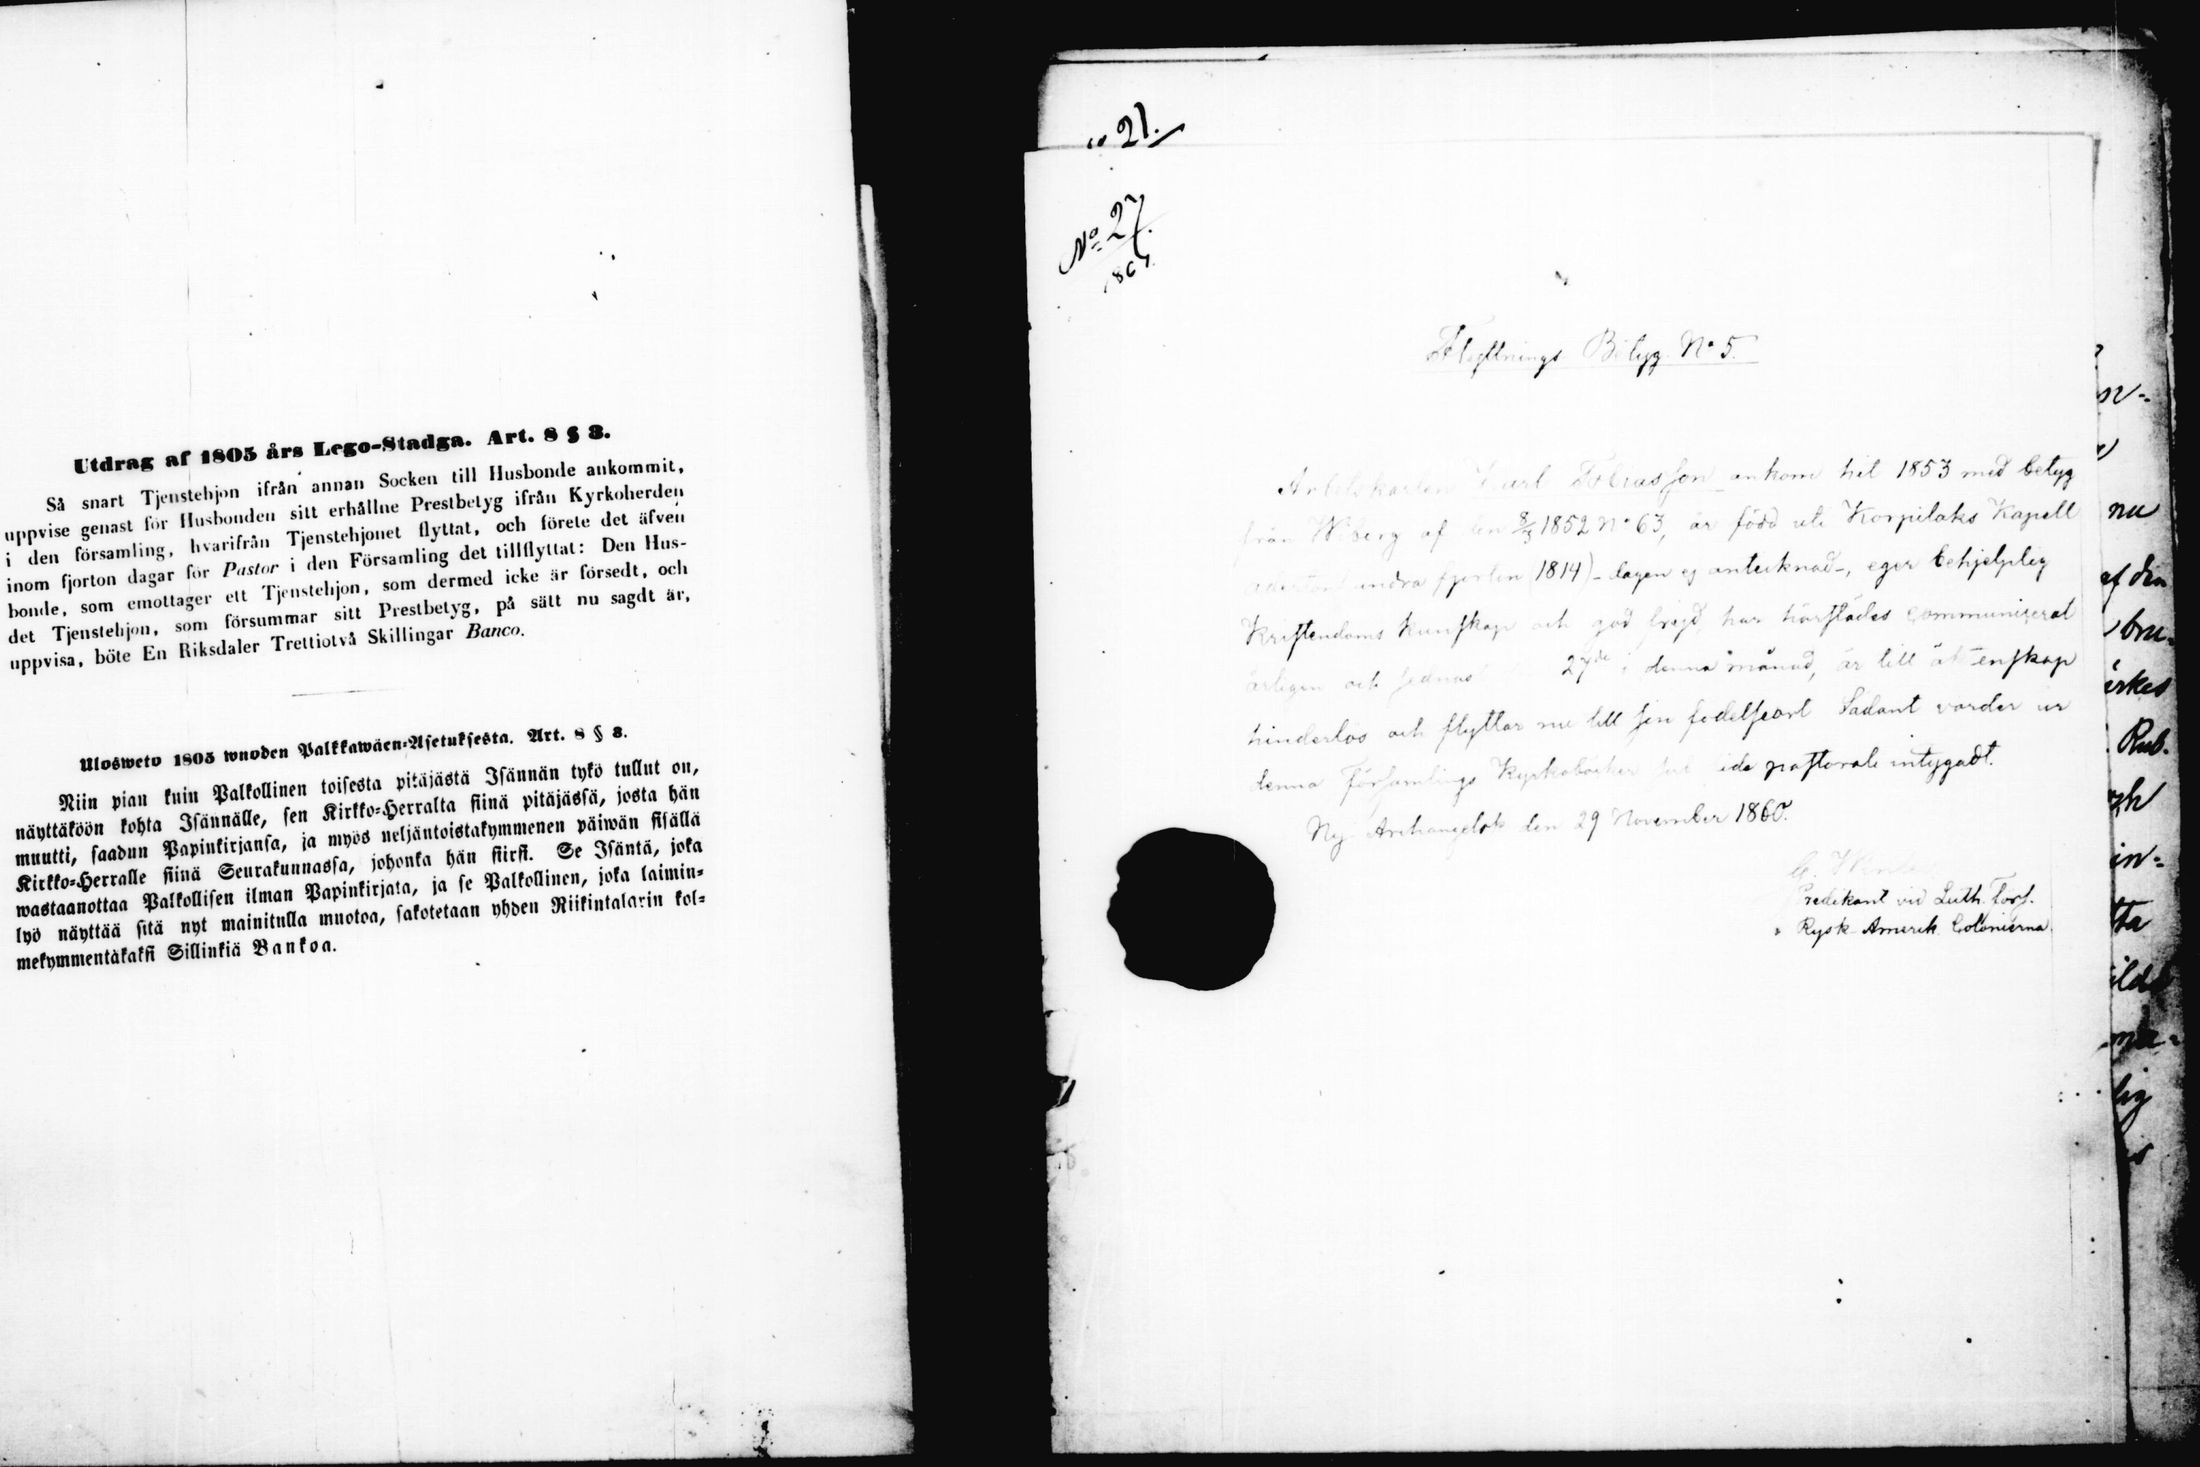 Utdrag af 1805 års Lego-Stadga. Art. 8 § 3.
Så snart Tjenstehjon ifrån annan Socken till Husbonde ankommit,
uppvise genast för Husbonden sitt erhållne Prestbetyg ifrån Kyrkoherden
i den församling, hvarifrån Tjenstehjonet flyttat, och förete det äfven
inom fjorton dagar för Pastor i den Församling det tillflyttat: Den Hus-
bonde, som emottager ett Tjenstehjon, som dermed icke är försedt, och
det Tjenstehjon, som försummar sitt Prestbetyg, på sätt nu sagdt är,
uppvisa, böte En Riksdaler Trettiotvå Skillingar Banco.
Ulosweto 1805 wuoden Palkkawäen-Asetuksesta. Art. 8 § 3.
Niin pian kuin Palkollinen toisesta pitäjästä Isännän tykö tullut on,
näyttäköön kohta Isännälle, sen Kirkko-Herralta siinä pitäjässä, josta hän
muutti, saadun Papinkirjansa, ja myös neljäntoistakymmenen päiwän sisällä
Kirkko-Herralle siinä Seurakunnassa, johonka hän siirsi. Se Isäntä, joka
wastaanottaa Palkollisen ilman Papinkirjata, ja se Palkollinen, joka laimin-
lyö näyttää sitä nyt mainitulla muotoa, sakotetaan yhden Riikintalarin kol-
mekymmentäkaksi Sillinkiä Bankoa.
21.
No 27.
Flyttnings Betyg No 5.
Arbetskarlen Karl Tobiasson ankom hit 1853 med betyg
från Wiborg af den 8/3 1852 No 63, är född uti Korpilaks Kapell
adertonhundra fjorton (1814) - dagen ej antecknad -, eger behjelplig
Kristendoms kunskap och god frejd, har härstädes communicerat
årligen och sednast den 27de i denna månad, är till äktenskap
hinderlös och flyttar nu till sin födelseort Sådant varder ur
denna Församlings Kyrkoböcker sub fide pastorali intygadt.
Ny Archangelsk den 29 November 1860.
Predikant vid Luth. Förs.
i Rysk Amerik. Colonierna.
nu
af den
bru-
Rub.
in-